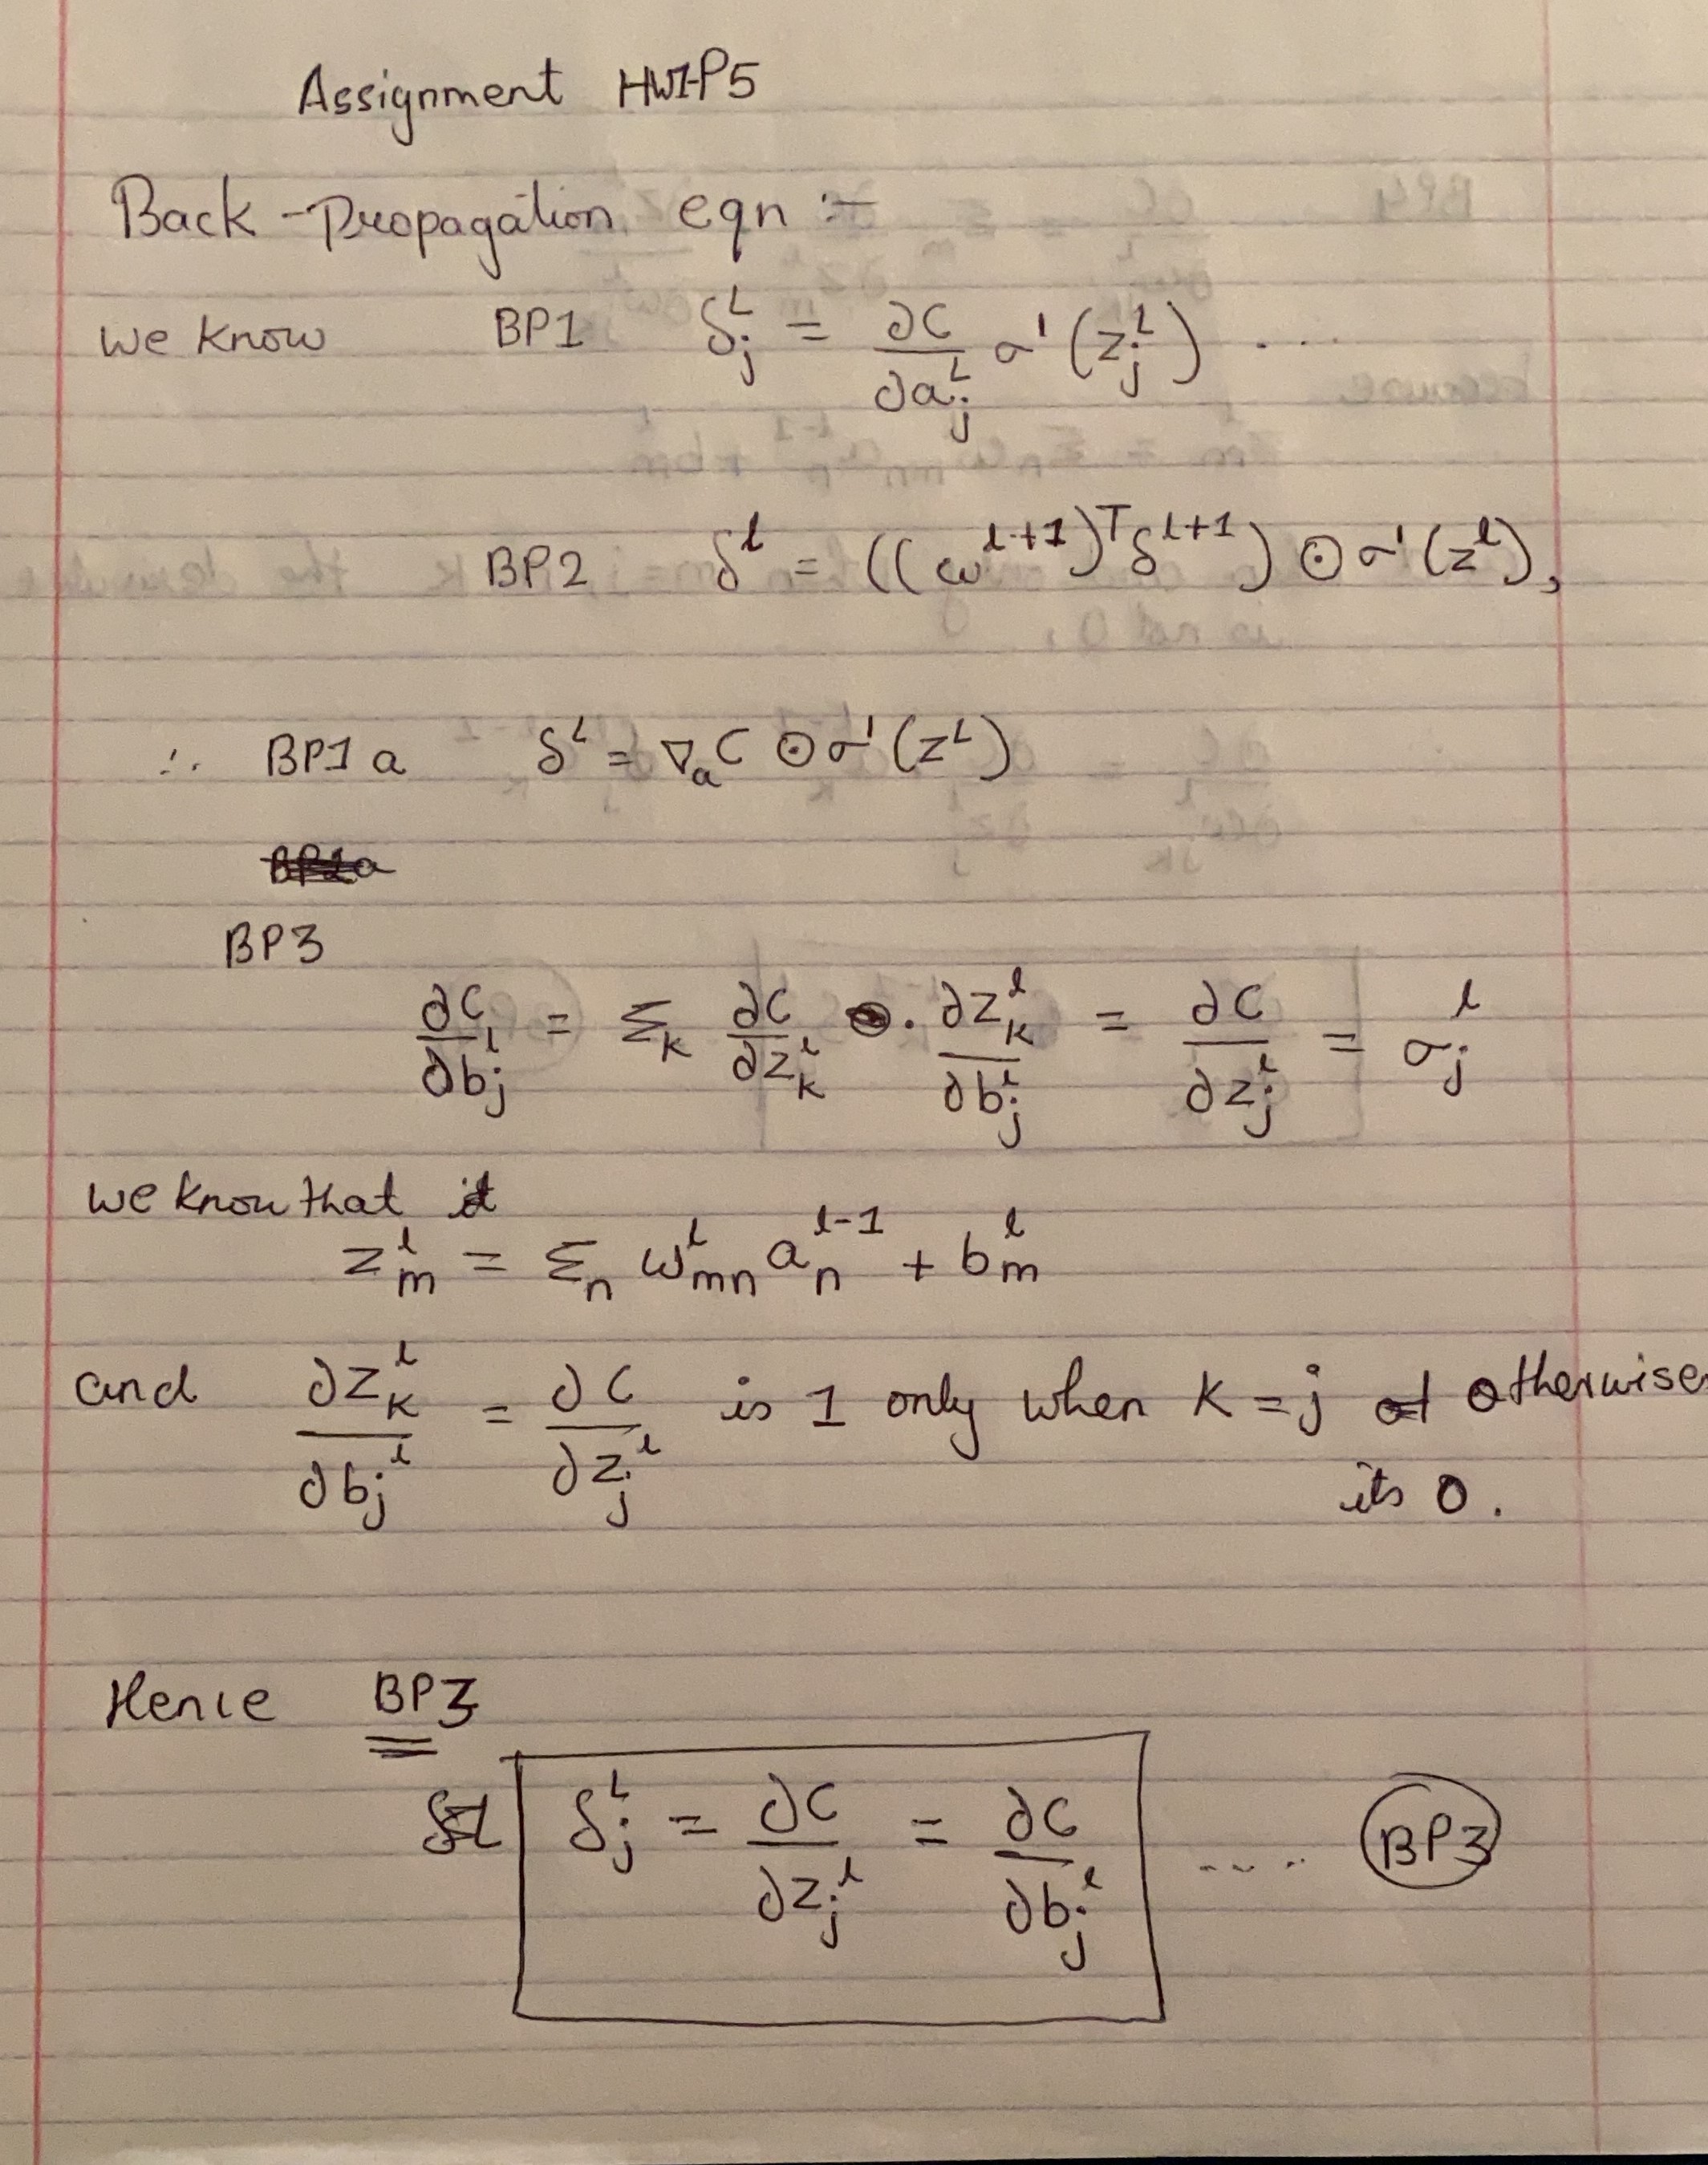 Assignment HW1-P5
Back-Propagation eqn :-
we know BP1 δ_j^L = ∂C/∂a_j^L σ'(z_j^L) ....
BP2 δ^l = ((ω^{l+1})^T δ^{l+1}) ⊙ σ'(z^l),
∴ BP1a δ^L = ∇_a C ⊙ σ'(z^L)
BP3
∂C/∂b_j^l = Σ_k ∂C/∂z_k^l . ∂z_k^l/∂b_j^l = ∂C/∂z_j^l = σ_j^l
we know that
z_m^l = Σ_n ω_mn^l a_n^{l-1} + b_m^l
and ∂z_k^l/∂b_j^l = ∂C/∂z_j^l is 1 only when k=j otherwise
its 0.
Hence BP3
δ_j^L = ∂C/∂z_j^l = ∂C/∂b_j^l .... BP3